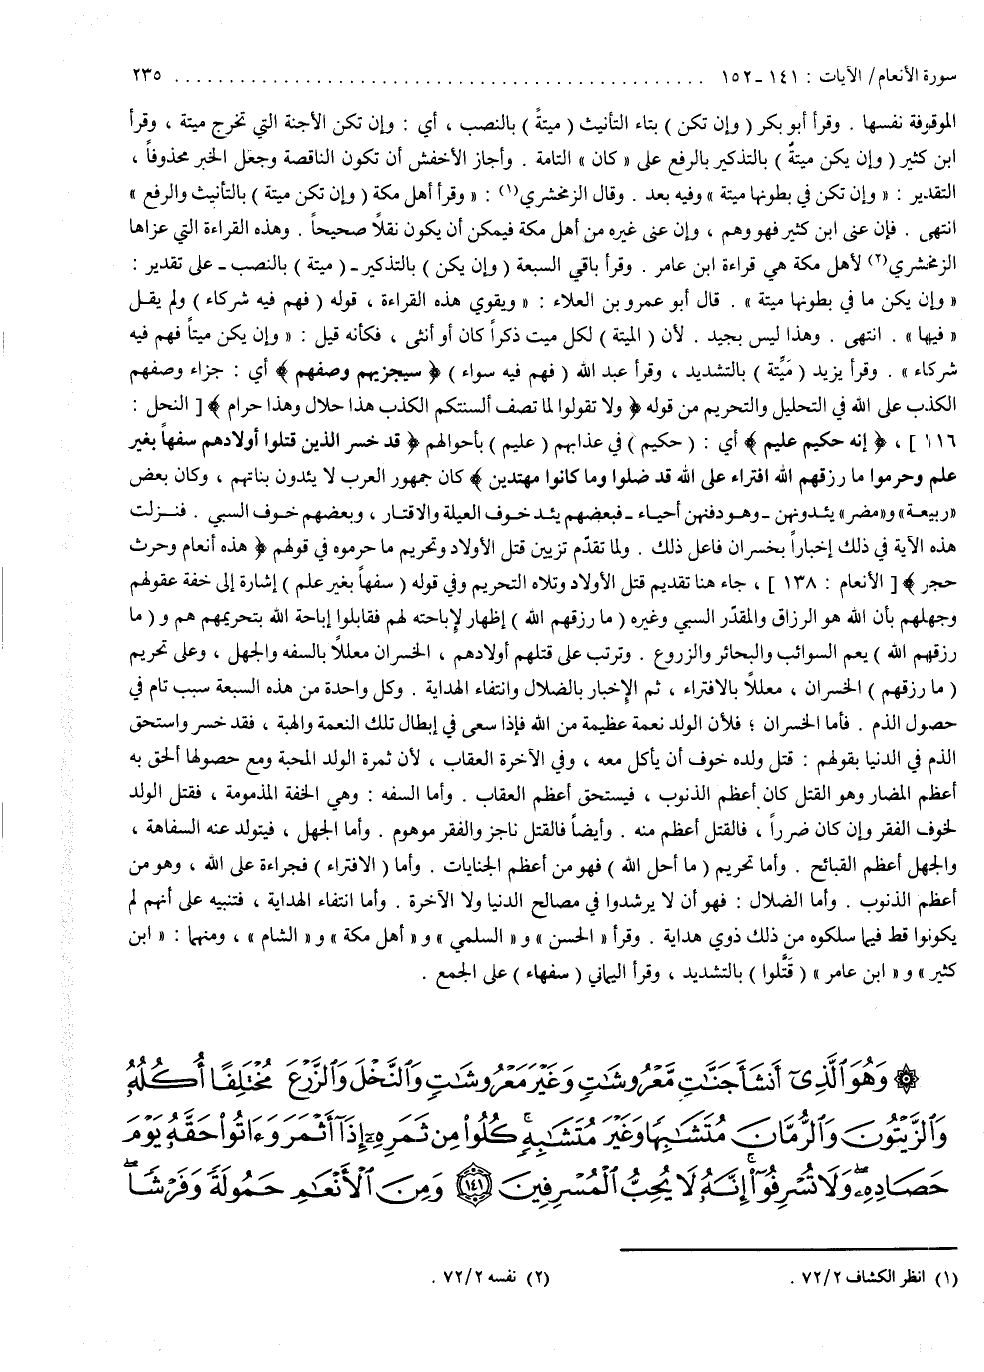 سورة الأنعام/ الآيات : ١٤١ - ١٥٢ ........................................ ٢٣٥
الموقوفة نفسها . وقرأ أبو بكر ( وإن تكن ) بتاء التأنيث ( ميتةً ) بالنصب ، أي : وإن تكن الأجنة التي تخرج ميتة ، وقرأ
ابن كثير ( وإن يكن ميتةٌ ) بالتذكير بالرفع على « كان » التامة . وأجاز الأخفش أن تكون الناقصة وجعل الخبر محذوفاً ،
التقدير : « وإن تكن في بطونها ميتة » وفيه بعد . وقال الزمخشري(١) : « وقرأ أهل مكة ( وإن تكن ميتة ) بالتأنيث والرفع »
انتهى . فإن عنى ابن كثير فهو وهم ، وإن عنى غيره من أهل مكة فيمكن أن يكون نقلاً صحيحاً . وهذه القراءة التي عزاها
الزمخشري(٢) لأهل مكة هي قراءة ابن عامر . وقرأ باقي السبعة ( وإن يكن ) بالتذكير ـ ( ميتة ) بالنصب ـ على تقدير :
« وإن يكن ما في بطونها ميتة » . قال أبو عمرو بن العلاء : « ويقوي هذه القراءة ، قوله ( فهم فيه شركاء ) ولم يقل
« فيها » . انتهى . وهذا ليس بجيد . لأن ( الميتة ) لكل ميت ذكراً كان أو أنثى ، فكأنه قيل : « وإن يكن ميتاً فهم فيه
شركاء » . وقرأ يزيد ( مَيِّتة ) بالتشديد ، وقرأ عبد الله ( فهم فيه سواء ) ﴿ سيجزيهم وصفهم ﴾ أي : جزاء وصفهم
الكذب على الله في التحليل والتحريم من قوله ﴿ ولا تقولوا لما تصف ألسنتكم الكذب هذا حلال وهذا حرام ﴾ [ النحل :
١١٦ ] ، ﴿ إنه حكيم عليم ﴾ أي : ( حكيم ) في عذابهم ( عليم ) بأحوالهم ﴿ قد خسر الذين قتلوا أولادهم سفهاً بغير
علم وحرموا ما رزقهم الله افتراء على الله قد ضلوا وما كانوا مهتدين ﴾ كان جمهور العرب لا يئدون بناتهم ، وكان بعض
«ربيعة» و«مضر» يئدونهن ـ وهو دفنهن أحياء ـ فبعضهم يئد خوف العيلة والاقتار ، وبعضهم خوف السبي . فنزلت
هذه الآية في ذلك إخباراً بخسران فاعل ذلك . ولما تقدّم تزيين قتل الأولاد وتحريم ما حرموه في قولهم ﴿ هذه أنعام وحرث
حجر ﴾ [ الأنعام : ١٣٨ ] ، جاء هنا تقديم قتل الأولاد وتلاه التحريم وفي قوله ( سفهاً بغير علم ) إشارة إلى خفة عقولهم
وجهلهم بأن الله هو الرزاق والمقدّر السبي وغيره ( ما رزقهم الله ) إظهار لإباحته لهم فقابلوا إباحة الله بتحريمهم هم و ( ما
رزقهم الله ) يعم السوائب والبحائر والزروع . وترتب على قتلهم أولادهم ، الخسران معللاً بالسفه والجهل ، وعلى تحريم
( ما رزقهم ) الخسران ، معللاً بالافتراء ، ثم الإخبار بالضلال وانتفاء الهداية . وكل واحدة من هذه السبعة سبب تام في
حصول الذم . فأما الخسران ؛ فلأن الولد نعمة عظيمة من الله فإذا سعى في إبطال تلك النعمة والهبة ، فقد خسر واستحق
الذم في الدنيا بقولهم : قتل ولده خوف أن يأكل معه ، وفي الآخرة العقاب ، لأن ثمرة الولد المحبة ومع حصولها ألحق به
أعظم المضار وهو القتل كان أعظم الذنوب ، فيستحق أعظم العقاب . وأما السفه : وهي الخفة المذمومة ، فقتل الولد
لخوف الفقر وإن كان ضرراً ، فالقتل أعظم منه . وأيضاً فالقتل ناجز والفقر موهوم . وأما الجهل ، فيتولد عنه السفاهة ،
والجهل أعظم القبائح . وأما تحريم ( ما أحل الله ) فهو من أعظم الجنايات . وأما ( الافتراء ) فجراءة على الله ، وهو من
أعظم الذنوب . وأما الضلال : فهو أن لا يرشدوا في مصالح الدنيا ولا الآخرة . وأما انتفاء الهداية ، فتنبيه على أنهم لم
يكونوا قط فيما سلكوه من ذلك ذوي هداية . وقرأ « الحسن » و « السلمي » و « أهل مكة » و « الشام » ، ومنهما : « ابن
كثير » و « ابن عامر » ( قَتَّلوا ) بالتشديد ، وقرأ اليماني ( سفهاء ) على الجمع .
۞ وَهُوَ ٱلَّذِىٓ أَنشَأَ جَنَّٰتٍ مَّعْرُوشَٰتٍ وَغَيْرَ مَعْرُوشَٰتٍ وَٱلنَّخْلَ وَٱلزَّرْعَ مُخْتَلِفًا أُكُلُهُۥ
وَٱلزَّيْتُونَ وَٱلرُّمَّانَ مُتَشَٰبِهًا وَغَيْرَ مُتَشَٰبِهٍۚ كُلُوا۟ مِن ثَمَرِهِۦٓ إِذَآ أَثْمَرَ وَءَاتُوا۟ حَقَّهُۥ يَوْمَ
حَصَادِهِۦۖ وَلَا تُسْرِفُوٓا۟ۚ إِنَّهُۥ لَا يُحِبُّ ٱلْمُسْرِفِينَ ١٤١ وَمِنَ ٱلْأَنْعَٰمِ حَمُولَةً وَفَرْشًاۚ
(١) انظر الكشاف ٧٢/٢ .
(٢) نفسه ٧٢/٢ .